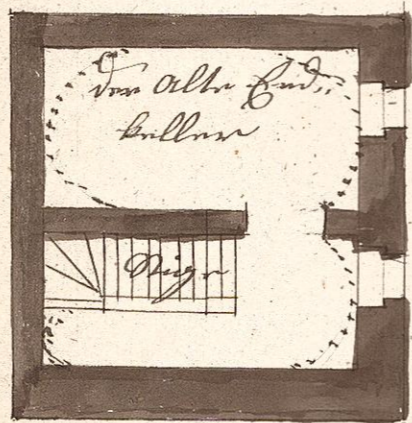 der alte Erd=
keller
Stiege